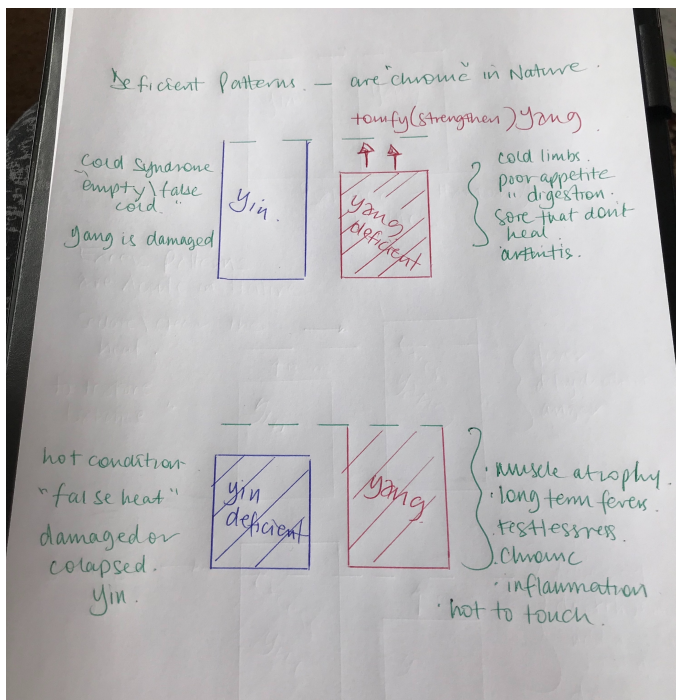 Deficient Patterns. — are "chronic" in Nature.
tonify (strengthen) Yang
cold syndrome
empty\false
cold."
yang is damaged
Yin.
yang
deficient
cold limbs.
poor appetite
" digestion.
sore that don't
heal.
arthritis.
hot condition
"false heat"
damaged or
colapsed.
yin.
yin
deficient
yang
· muscle atrophy.
· long term fevers.
· restlessness.
· chronic
· inflammation
· hot to touch.